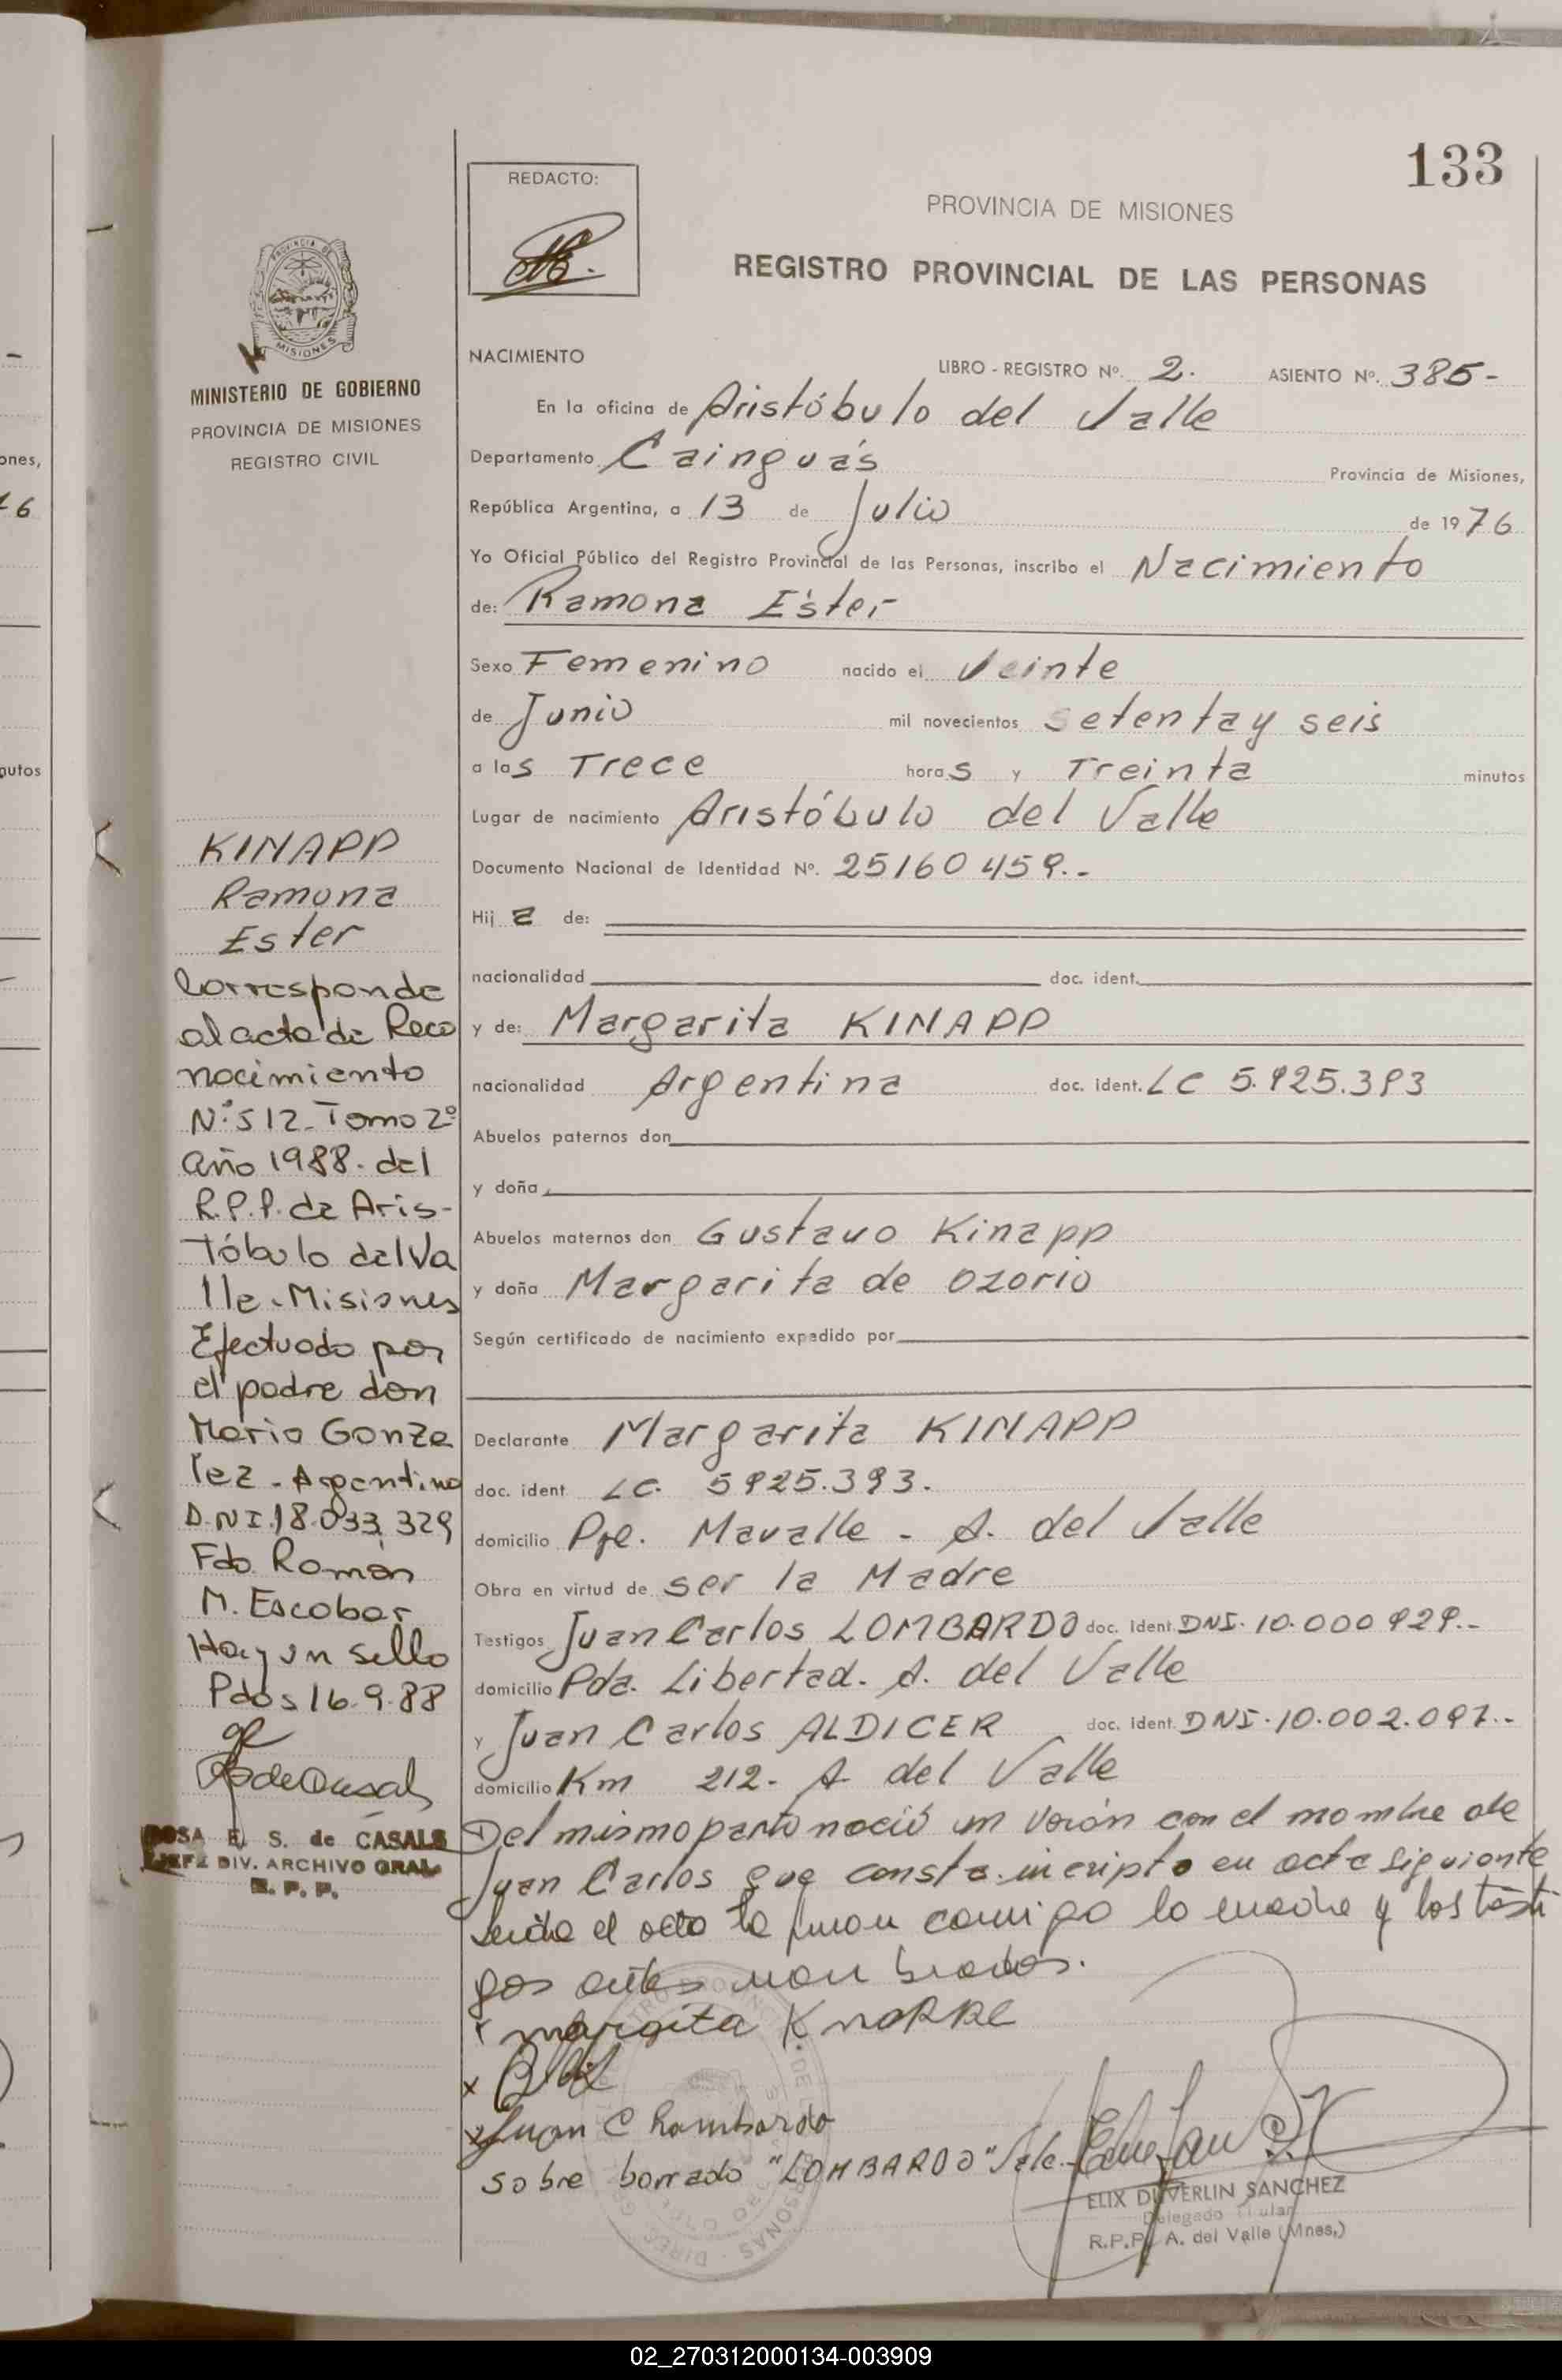 133
REDACTO:
PROVINCIA DE MISIONES
REGISTRO PROVINCIAL DE LAS PERSONAS
PROVINCIA DE
MISIONES
MINISTERIO DE GOBIERNO
PROVINCIA DE MISIONES
REGISTRO CIVIL
NACIMIENTO
LIBRO - REGISTRO Nº. 2. ASIENTO Nº. 385-
En la oficina de Aristóbulo del Valle
Departamento Cainguás Provincia de Misiones,
República Argentina, a 13 de Julio de 1976
Yo Oficial Público del Registro Provincial de las Personas, inscribo el Nacimiento
de: Ramona Ester
Sexo Femenino nacido el Veinte
de Junio mil novecientos setenta y seis
a las Trece horas y Treinta minutos
Lugar de nacimiento Aristóbulo del Valle
Documento Nacional de Identidad Nº. 25160459.-
Hija de:
nacionalidad doc. ident.
y de: Margarita KINAPP
nacionalidad Argentina doc. ident. LC 5.925.393
Abuelos paternos don
y doña
Abuelos maternos don Gustavo Kinapp
y doña Margarita de Ozorio
Según certificado de nacimiento expedido por
Declarante Margarita KINAPP
doc. ident LC. 5925.393.
domicilio Pje. Mavalle - A. del Valle
Obra en virtud de ser la Madre
Testigos Juan Carlos LOMBARDO doc. ident DNI. 10.000929.-
domicilio Pda. Libertad. A. del Valle
y Juan Carlos ALDICER doc. ident. DNI. 10.002.097.-
domicilio Km 212- A del Valle
Del mismo parto nació un Varón con el nombre de
Juan Carlos que consta incripto en acta siguiente
Leida el acta la firman conmigo la madre y los testi
gos antes nombrados.
x margarita KnaPPe
x
x Juan C Lombardo
sobre borrado "LOMBARDO" Vale.
ELIX DUVERLIN SANCHEZ
Delegado Titular
R.P.P. A. del Valle (Mnes,)
KINAPP
Ramona
Ester
Corresponde
al acta de Reco
nocimiento
Nº 512 - Tomo 2º
año 1988. del
R.P.P. de Aris-
tóbulo del Va
lle - Misiones
Efectuado por
el padre don
Mario Gonza
lez - Argentino
D.N.I. 18.033.329
Fdo. Román
M. Escobar
Hay un sello
Pdas 16.9.88
ROSA E. S. de CASALS
JEFE DIV. ARCHIVO GRAL
R. P. P.
ones,
utos
02_270312000134-003909